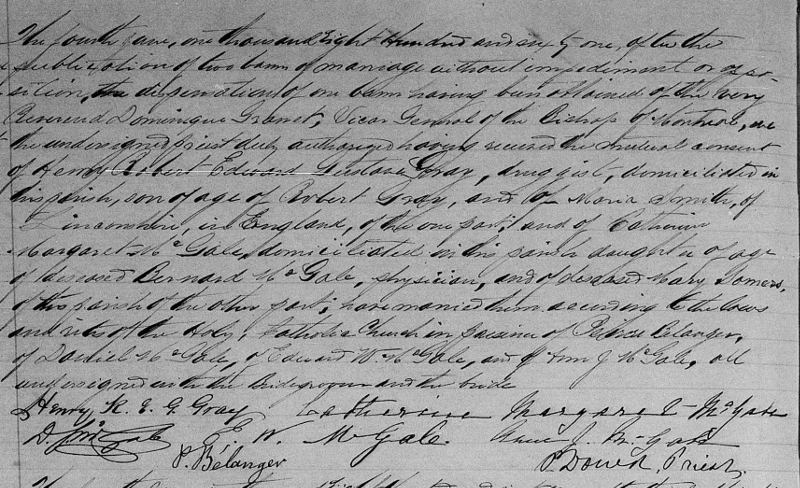 The fourth June, one thousand Eight Hundred and sixty one, after the
publication of two bans of marriage without impediment or oppo-
sition, the dispensation of one bann having been obtained of the Very
Reverend Dominique Granet, Vicar General of the Bishop of Montreal, we
the undersigned priest duly authorized having received the mutual consent
of Henry Robert Edward Gustave Gray, druggist, domiciliated in
this parish, son of age of Robert Gray, and of Maria Smith, of
Lincolnshire, in England, of the one part; and of Catherine
Margaret McGale, domiciliated in this parish daughter of age
of deceased Bernard McGale, physician, and of deceased Mary Somers,
of this parish of the other part; have married them according to the laws
and rites of the Holy, Catholic Church in presence of Patrice Belanger,
of Daniel McGale, of Edward W. McGale, and of Ann J. McGale, all
undersigned with the bridegroom and the bride
Henry R. E. G. Gray Catherine Margaret McGale
D. McGale E. W. McGale. Anne J. McGale
P. Bélanger P. Dowd, Priest